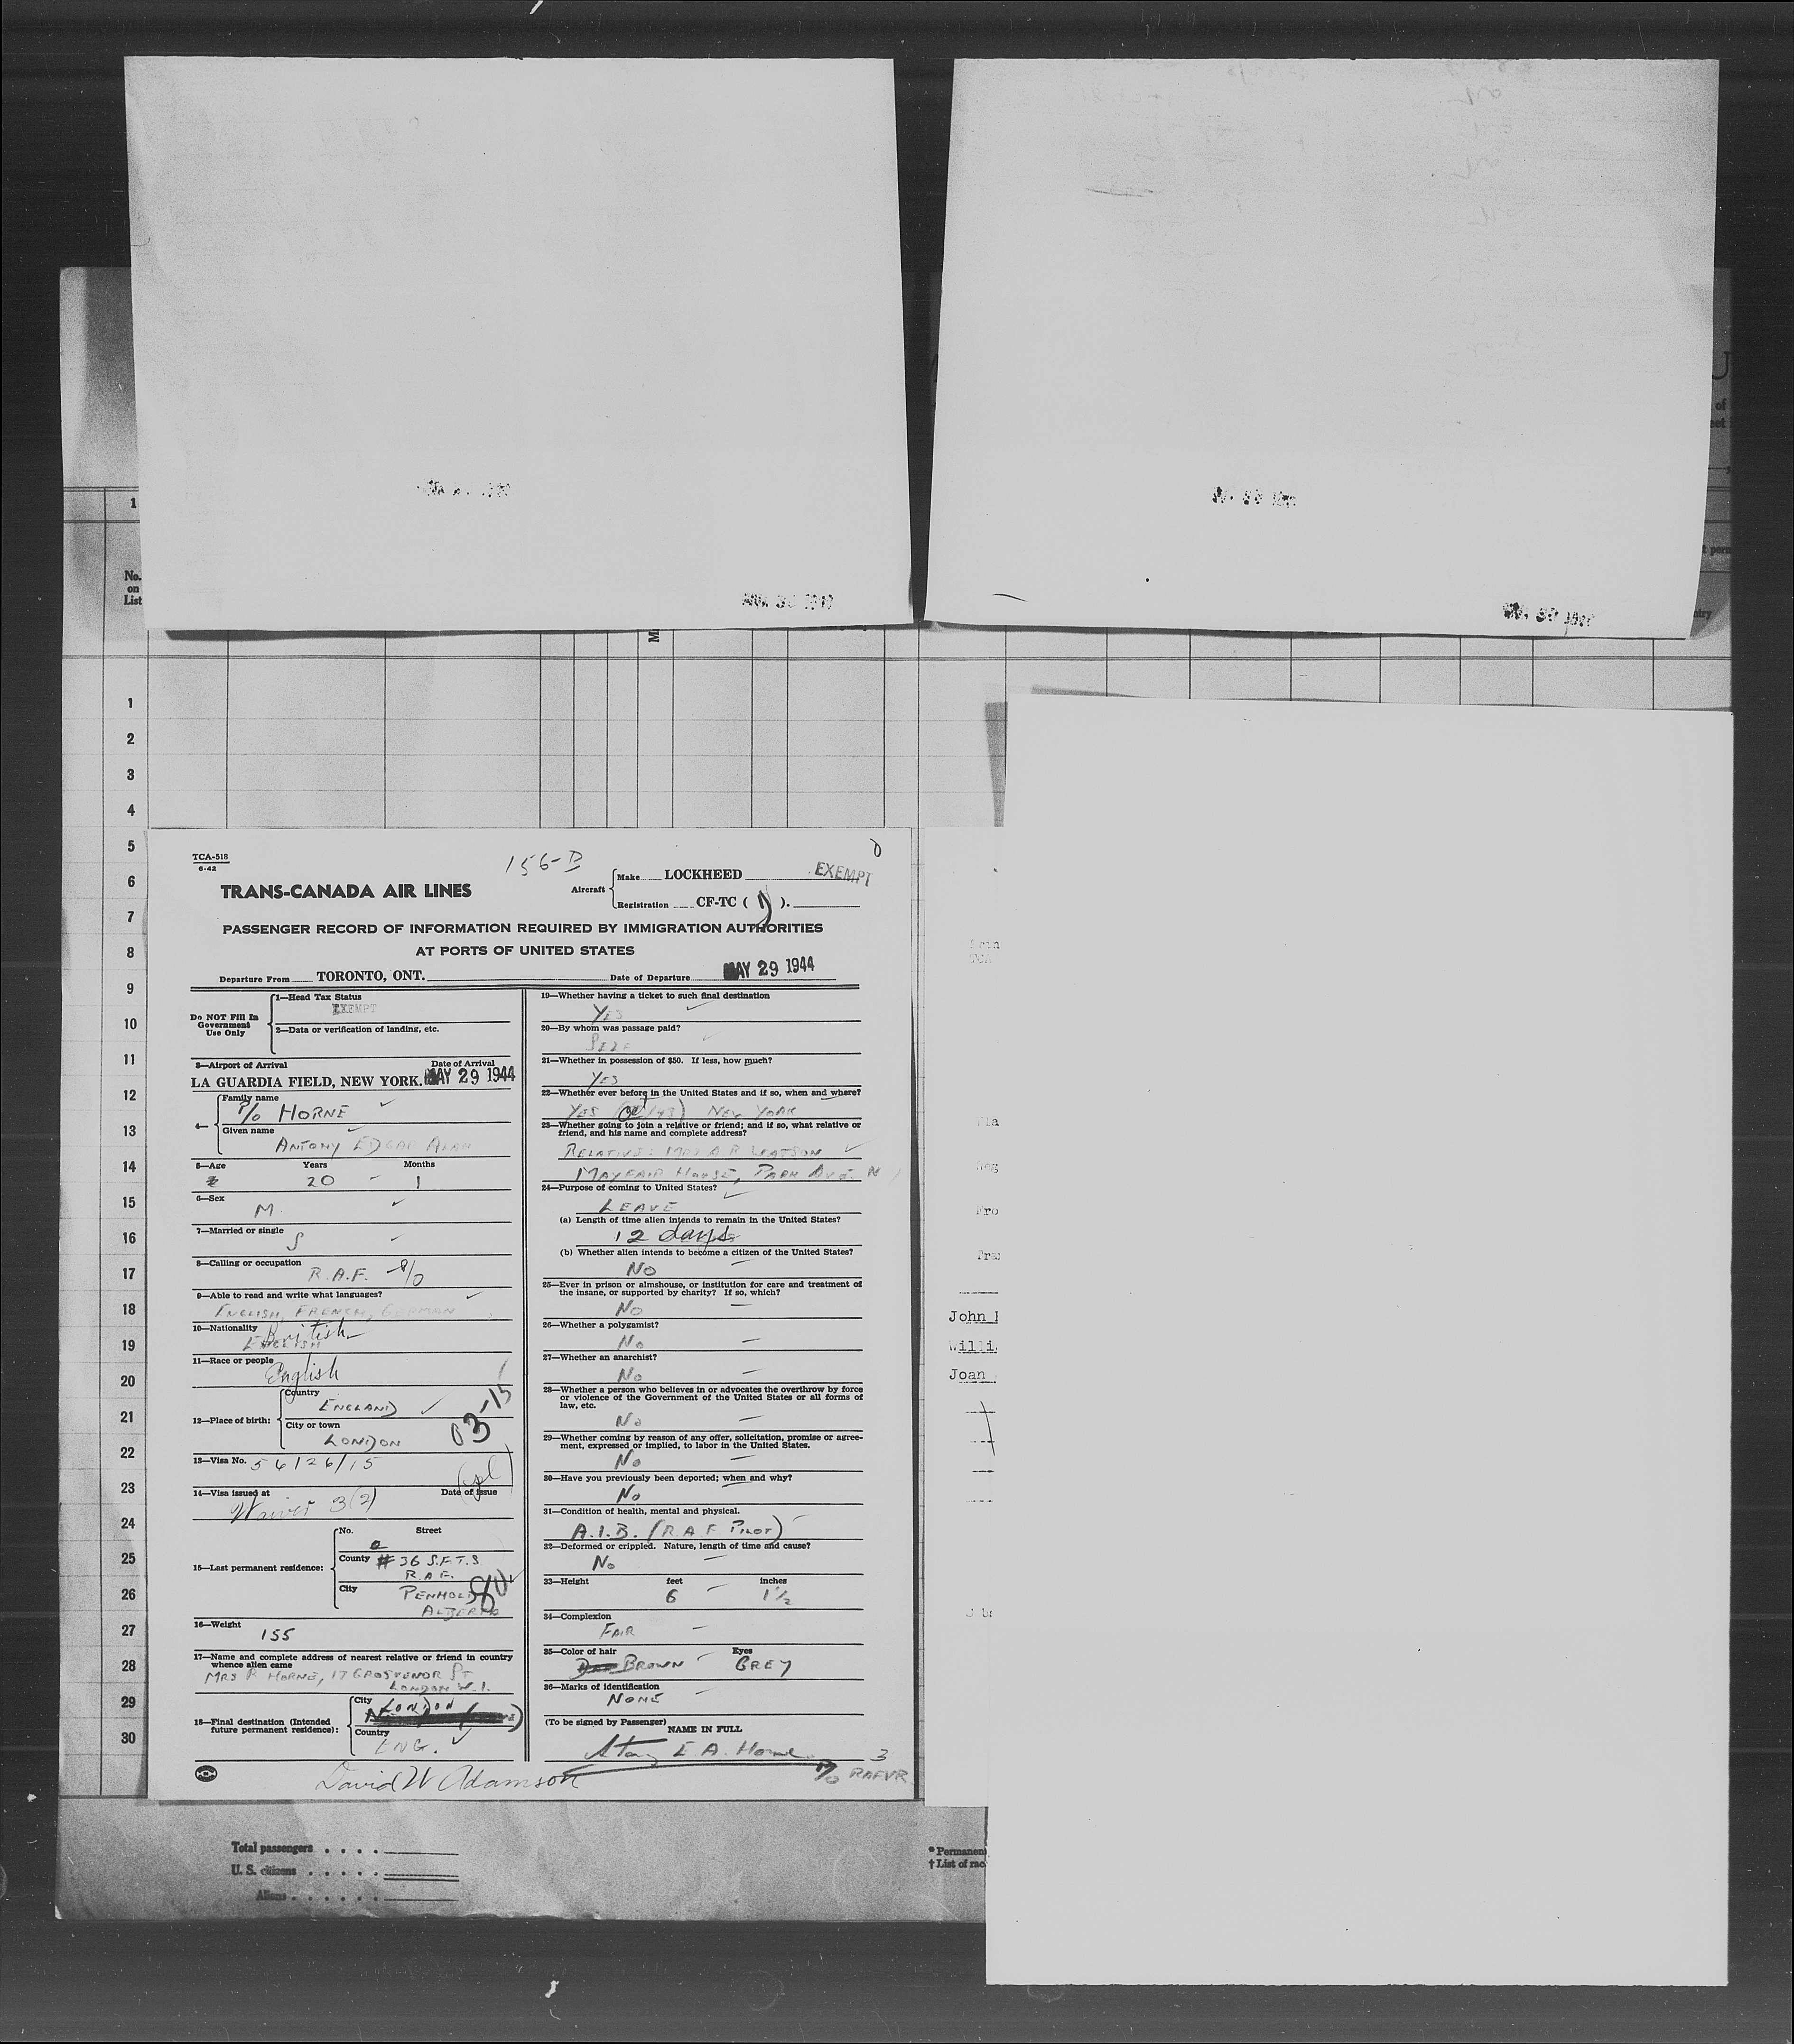 1
No.
on
List
1
2
3
4
5
6
7
8
9
10
11
12
13
14
15
16
17
18
19
20
21
22
23
24
25
26
27
28
29
30
TCA-518
6-42
156-D
TRANS-CANADA AIR LINES
Aircraft
Make LOCKHEED
EXEMPT
Registration CF-TC ( ).
PASSENGER RECORD OF INFORMATION REQUIRED BY IMMIGRATION AUTHORITIES
AT PORTS OF UNITED STATES
Departure From TORONTO, ONT. Date of Departure MAY 29 1944
Do NOT Fill In
Government
Use Only
1—Head Tax Status
EXEMPT
2—Data or verification of landing, etc.
3—Airport of Arrival Date of Arrival
LA GUARDIA FIELD, NEW YORK. MAY 29 1944
4—
Family name
P/O HORNE
Given name
ANTONY EDGAR ALAN
5—Age Years Months
20 1
6—Sex
M.
7—Married or single
S
8—Calling or occupation
R.A.F. P/O
9—Able to read and write what languages?
ENGLISH, FRENCH, GERMAN
10—Nationality British
ENGLISH
11—Race or people
English
12—Place of birth:
Country
ENGLAND
City or town
LONDON
03-15
13—Visa No. 56126/15
14—Visa issued at Date of issue
Waiver 3(2)
15—Last permanent residence:
No. Street
County # 36 S.F.T.S
R.A.F.
City PENHOLD
ALBERTA
16—Weight
155
17—Name and complete address of nearest relative or friend in country
whence alien came
MRS R HORNE, 17 GROSVENOR ST
LONDON W.1.
18—Final destination (Intended
future permanent residence):
City
LONDON
Country
ENG.
David W Adamson
19—Whether having a ticket to such final destination
YES
20—By whom was passage paid?
SELF
21—Whether in possession of $50. If less, how much?
YES
22—Whether ever before in the United States and if so, when and where?
YES (Oct/43) NEW YORK
23—Whether going to join a relative or friend; and if so, what relative or
friend, and his name and complete address?
RELATIVE: MRS A R WATSON
MAYFAIR HOUSE, PARK AVE. N
24—Purpose of coming to United States?
LEAVE
(a) Length of time alien intends to remain in the United States?
12 days
(b) Whether alien intends to become a citizen of the United States?
NO
25—Ever in prison or almshouse, or institution for care and treatment of
the insane, or supported by charity? If so, which?
No
26—Whether a polygamist?
No
27—Whether an anarchist?
No
28—Whether a person who believes in or advocates the overthrow by force
or violence of the Government of the United States or all forms of
law, etc.
No
29—Whether coming by reason of any offer, solicitation, promise or agree-
ment, expressed or implied, to labor in the United States.
No
30—Have you previously been deported; when and why?
No
31—Condition of health, mental and physical.
A.1.B. (R.A.F. PILOT)
32—Deformed or crippled. Nature, length of time and cause?
No
33—Height feet inches
6 1½
34—Complexion
FAIR
35—Color of hair Eyes
BROWN GREY
36—Marks of identification
NONE
(To be signed by Passenger)
NAME IN FULL
Antony E. A. Horne
P/O RAFVR
3
John
Willi
Joan
Total passengers . . . .
U. S. citizens . . . . .
Aliens . . . . . .
* Permanen
† List of rac